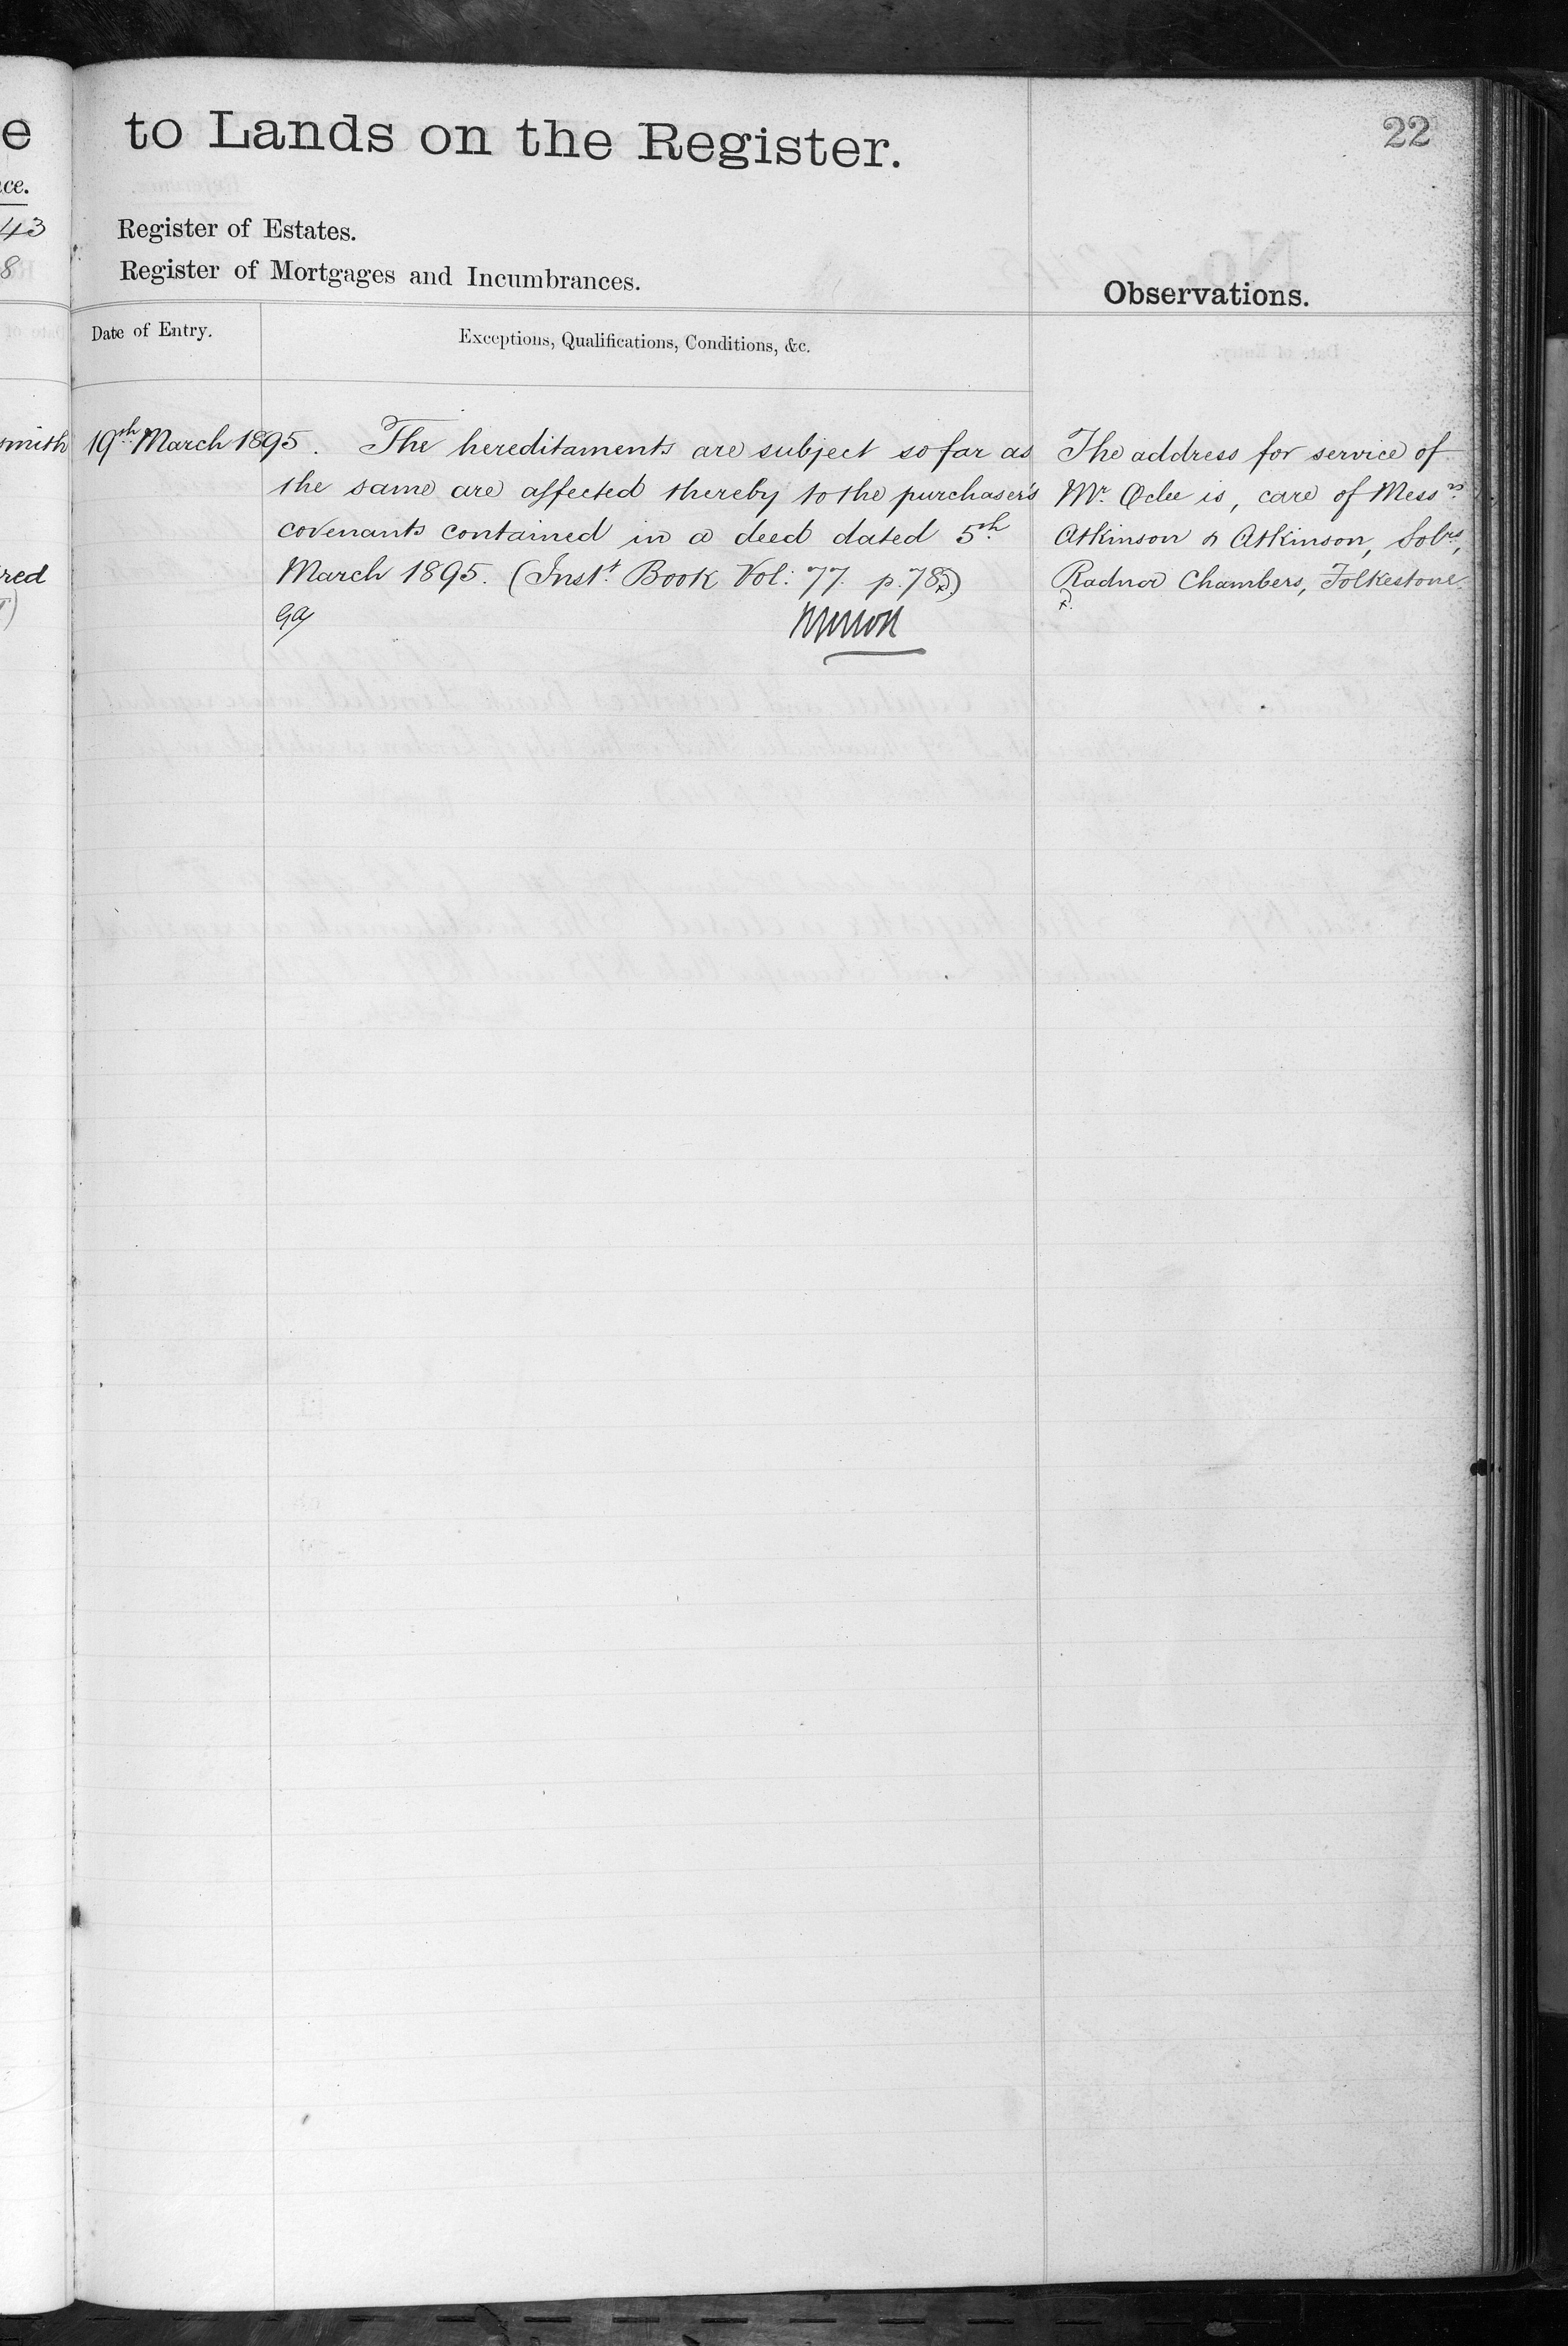 e
ce.
43
8
smith
red
to Lands on the Register.
22
Register of Estates.
Register of Mortgages and Incumbrances.
Observations.
Date of Entry.
Exceptions, Qualifications, Conditions, &c.
19th March 1895. The hereditaments are subject so far as
the same are affected thereby to the purchaser's
covenants contained in a deed dated 5th
March 1895. (Inst. Book Vol: 77. p. 78.)
The address for service of
Mr. Oclee is, care of Messrs
Atkinson & Atkinson, Solrs,
Radnor Chambers, Folkestone.